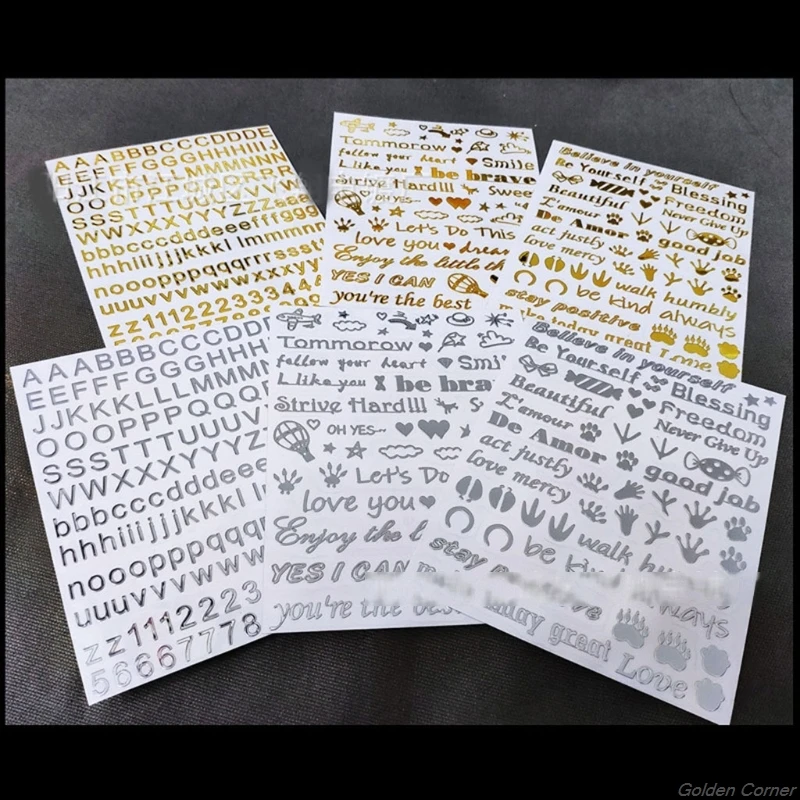 AAABBBCCCDDDE
EEFFFGGGHHHIIIJ
JJKKKLLLMMMNNN
OOOPPPQQQRRR
SSSTTTUUUVVV
WWXXXYYYZZZ
bbbcccdddeeefffggg
hhhiiijjjkkkl lmmmnn
nooopppqqqrrr
uuuvvvwwwxxx
zz111222333
Tommorow
follow your heart Smile
I Like you be brave
Strive Hard!!! Swee
OH YES~
Let's Do This
love you dream
Enjoy the little th
YES I CAN
you're the best
Believe in yourself
Be Yourself Blessing
Beautiful Freedom
L'amour Never Give Up
De Amor
act justly good job
love mercy
walk humbly
be kind always
stay positive
great Love
AAABBBCCCDDD
EEEFFFGGGHHH
JJKKKLLLMMM
OOOPPPQQQ
SSSTTTUUUV
WWXXXYYYZ
bbbcccdddeee
hhhiiijjjkkkl lm
nooopppqqq
uuuvvvwww
zz1112223
566677778
Tommorow
follow your heart Smi
I Like you be bra
Strive Hard!!! S
OH YES~
Let's Do
love you
Enjoy the l
YES I CAN
you're the bes
Believe in yourself
Be Yourself Blessing
Beautiful Freedom
L'amour Never Give Up
De Amor
act justly good job
love mercy
walk hu
be kind always
stay positive
today great Love
Golden Corner